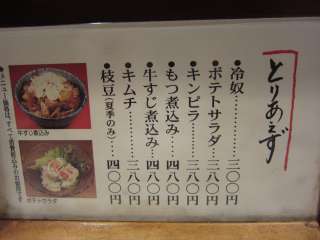 とりあえず
冷奴……三〇〇円
ポテトサラダ…三八〇円
キンピラ……三八〇円
もつ煮込み……四〇〇円
牛すじ煮込み…四〇〇円
キムチ……三八〇円
枝豆(夏季のみ)…四〇〇円
牛すじ煮込み
ポテトサラダ
●メニュー価格は、すべて消費税込みの